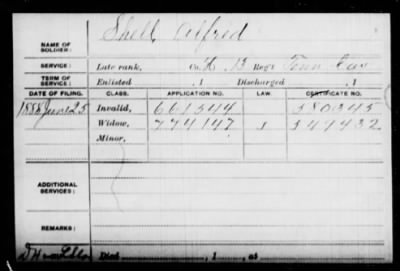 Shell Alfred
NAME OF SOLDIER:
SERVICE: Late rank, Co. H, 13 Reg't Tenn Cav
TERM OF SERVICE: Enlisted , 1 Discharged , 1
DATE OF FILING. CLASS. APPLICATION NO. LAW. CERTIFICATE NO.
1888 June 25 Invalid, 661344 580345
Widow, 774147 349432
Minor,
ADDITIONAL SERVICES:
REMARKS:
Died , 1 , at